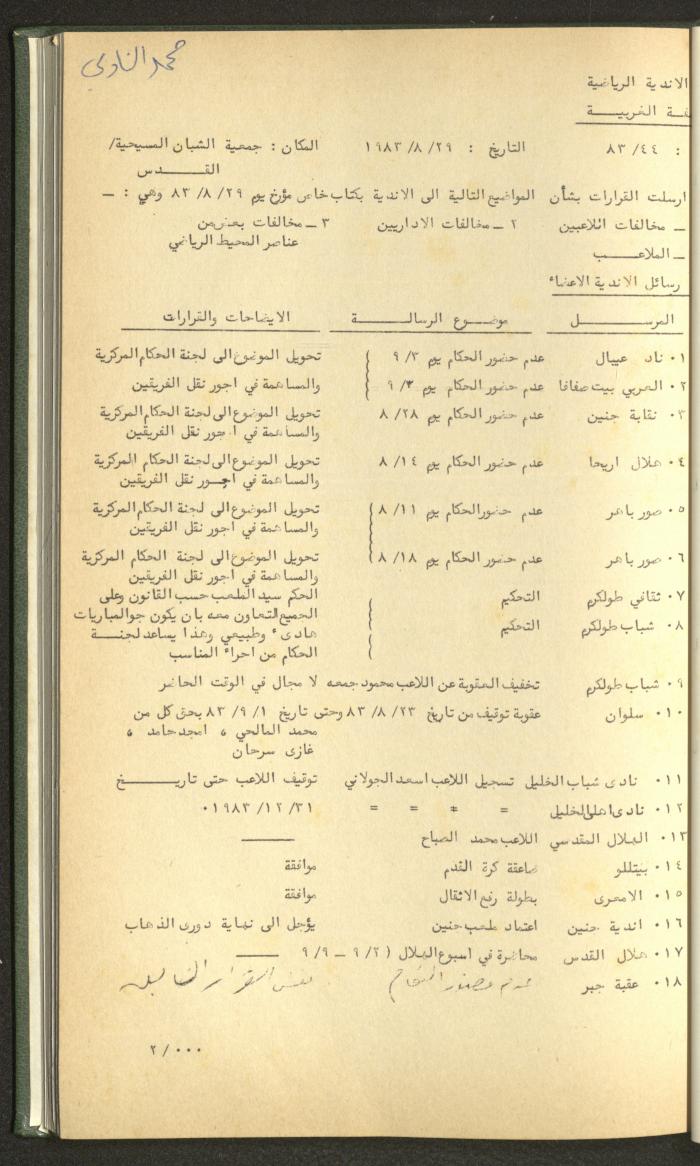 محمد النادي
الاندية الرياضية
ـفة الغربيـــــة
: ٨٣/٤٤ التاريخ : ١٩٨٣/٨/٢٩ المكان : جمعية الشبان المسيحية/
القـــــدس
ارسلت القرارات بشأن المواضيع التالية الى الاندية بكتاب خاص مؤرخ يوم ٨٣/٨/٢٩ وهي : ـ
ـ مخالفات اللاعبين ٢ ـ مخالفات الاداريين ٣ ـ مخالفات بعض من
عناصر المحيط الرياضي
ـ الملاعــب
رسائل الاندية الاعضاء
المرســـــل موضــوع الرسالـــــة الايضاحات والقرارات
٠١ ناد عيبال عدم حضور الحكام يوم ٩/٣ تحويل الموضوع الى لجنة الحكام المركزية
٠٢ العربي بيت صفافا عدم حضور الحكام يوم ٩/٣ والمساهمة في اجور نقل الفريقين
٠٣ نقابة جنين عدم حضور الحكام يوم ٨/٢٨ تحويل الموضوع الى لجنة الحكام المركزية
والمساهمة في اجور نقل الفريقين
٠٤ هلال اريحا عدم حضور الحكام يوم ٨/١٤ تحويل الموضوع الى لجنة الحكام المركزية
والمساهمة في اجــور نقل الفريقين
٠٥ صور باهر عدم حضور الحكام يوم ٨/١١ تحويل الموضوع الى لجنة الحكام المركزية
والمساهمة في اجور نقل الفريقين
٠٦ صور باهر عدم حضور الحكام يوم ٨/١٨ تحويل الموضوع الى لجنة الحكام المركزية
والمساهمة في اجور نقل الفريقين
٠٧ ثقافي طولكرم التحكيم الحكم سيد الملعب حسب القانون وعلى
الجميع التعاون معه بان يكون جو المباريات
٠٨ شباب طولكرم التحكيم هادىء وطبيعي وهذا يساعد لجنـــة
الحكام من اجراء المناسب
٠٩ شباب طولكرم تخفيف العقوبة عن اللاعب محمود جمعه لا مجال في الوقت الحاضر
٠١٠ سلوان عقوبة توقيف من تاريخ ٨٣/٨/٢٣ وحتى تاريخ ٨٣/٩/١ بحق كل من
محمد المالحي ، امجد حامد ،
غازى سرحان
٠١١ نادى شباب الخليل تسجيل اللاعب اسعد الجولاني توقيف اللاعب حتى تاريـــــخ
٠١٢ نادى اهلي الخليل = = = = ١٩٨٣/١٢/٣١٠
٠١٣ الهلال المقدسي اللاعب محمد الصباح ـــــــ
٠١٤ بيتللو صاعقة كرة القدم موافقة
٠١٥ الامعرى بطولة رفع الاثقال موافقة
٠١٦ اندية جنين اعتماد ملعب جنين يؤجل الى نهاية دورى الذهاب
٠١٧ هلال القدس محاضرة في اسبوع الهلال (٩/٢ ـ ٩/٩ ـــــــ
٠١٨ عقبة جبر عدم حضور الحكام نفس القرار السابق
٢/٠٠٠